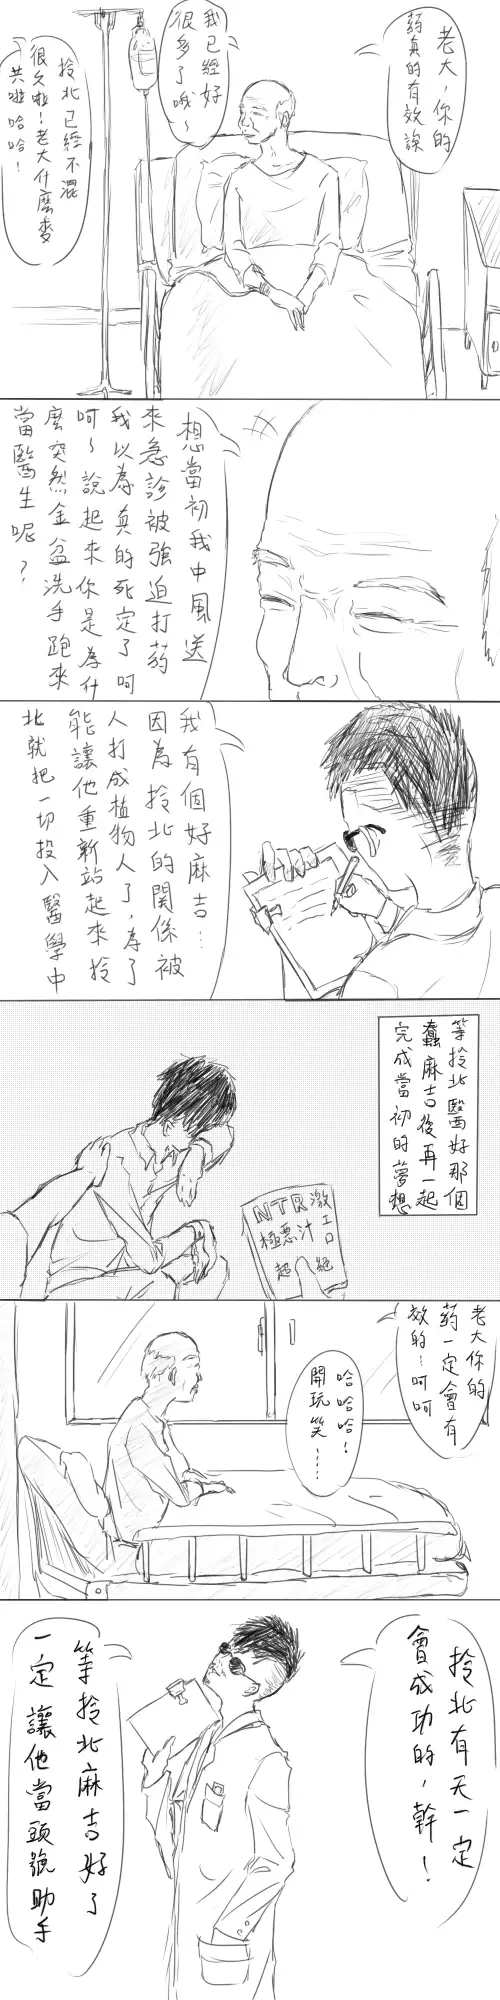 老大，你的
葯真的有效誒
我已經好
很多了哦～
拎北已經不混
很久啦！老大什麼麥
共啦哈哈！
想當初我中風送
來急診被強迫打葯
我以為真的死定了呵
呵～說起來你是為什
麼突然金盆洗手跑來
當醫生呢？
我有個好麻吉…
因為拎北的關係被
人打成植物人了，為了
能讓他重新站起來拎
北就把一切投入醫學中
等拎北醫好那個
蠢麻吉後再一起
完成當初的夢想
NTR激
極悪汁工口
超絕
老大你的
葯一定會有
效的～呵呵
哈哈哈！
開玩笑……
拎北有天一定
會成功的，幹！
等拎北麻吉好了
一定讓他當頭號助手